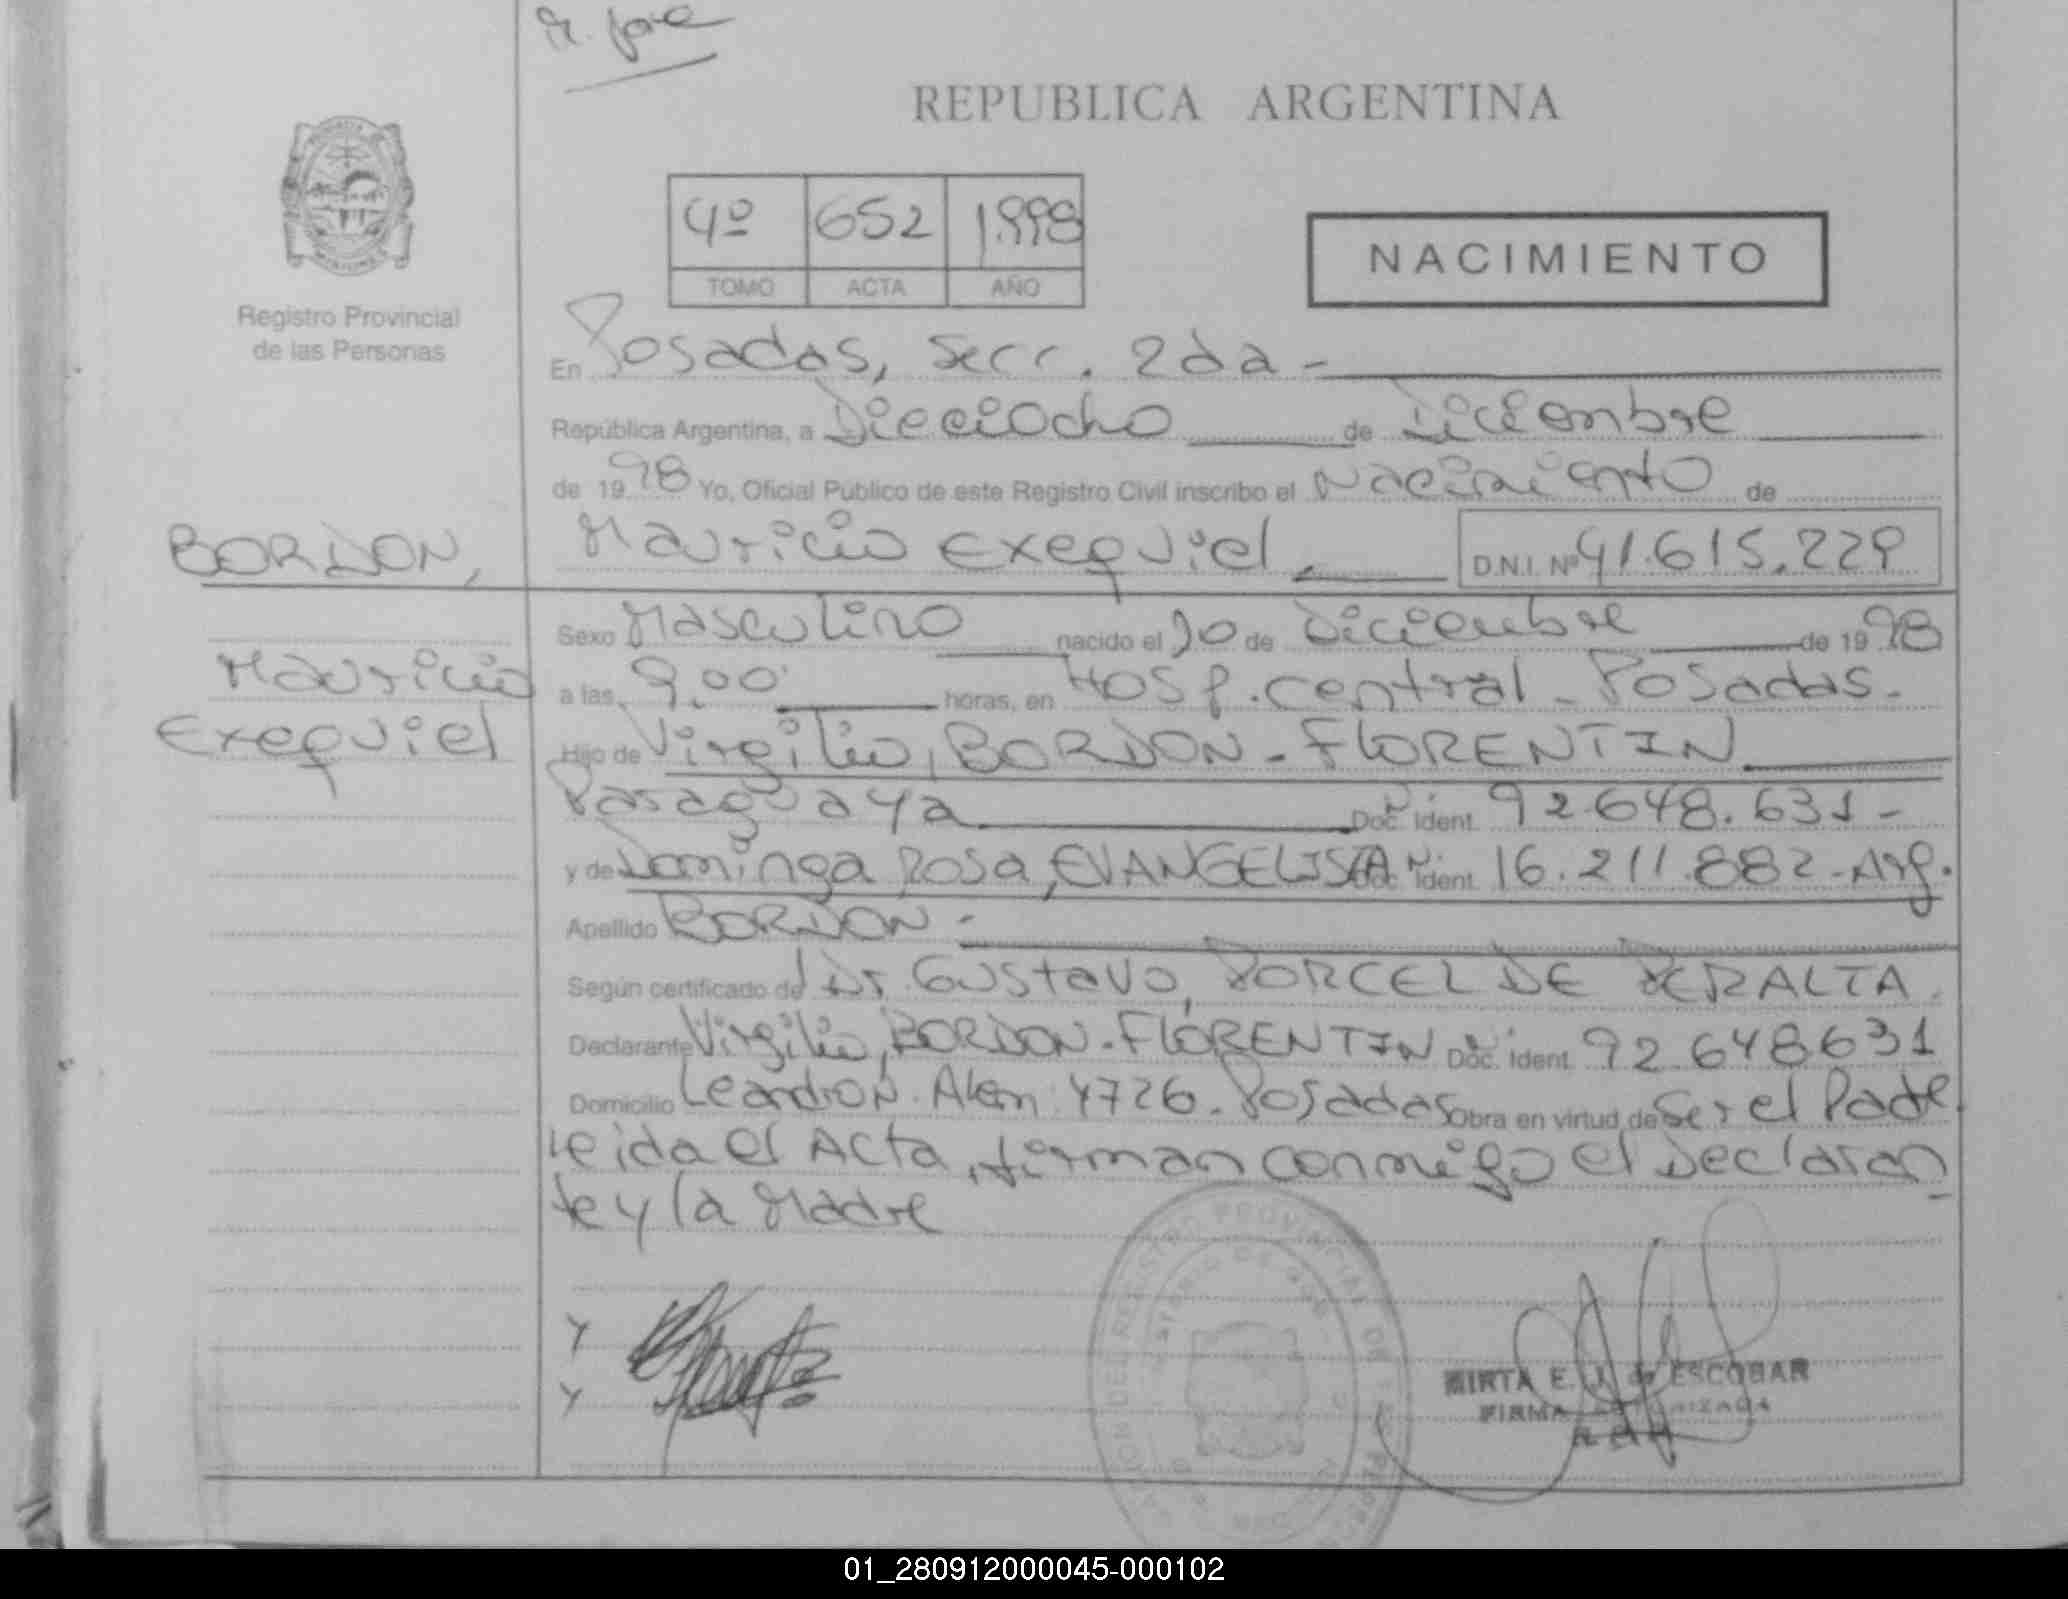 REPUBLICA ARGENTINA
4º 652 1.998
TOMO ACTA AÑO
NACIMIENTO
Registro Provincial
de las Personas
En Posadas, Secc. 2da -
República Argentina, a Dieciocho de Diciembre
de 1998 Yo, Oficial Público de este Registro Civil inscribo el Nacimiento de
BORDON, Mauricio Exequiel. D.N.I. Nº 41.615.229
Sexo Masculino nacido el 10 de Diciembre de 1998
Mauricio
a las 9.00 horas, en Hosp. Central - Posadas.
Exequiel
Hijo de Virgilio, BORDON - FLORENTIN
Paraguaya Doc. Ident. 92.648.631 -
y de Dominga Rosa, EVANGELISTA Doc. Ident. 16.211.882 - Arg.
Apellido BORDON -
Según certificado del Dr. Gustavo, PORCEL DE PERALTA.
Declarante Virgilio, BORDON - FLORENTIN Doc. Ident. 92.648631
Domicilio Leandro N. Alem 4726. Posadas Obra en virtud de Ser el Padre
Leida el Acta, firman conmigo el Declaran
te y la Madre
MIRTA E. J. de ESCOBAR
FIRMA AUTORIZADA
01_280912000045-000102